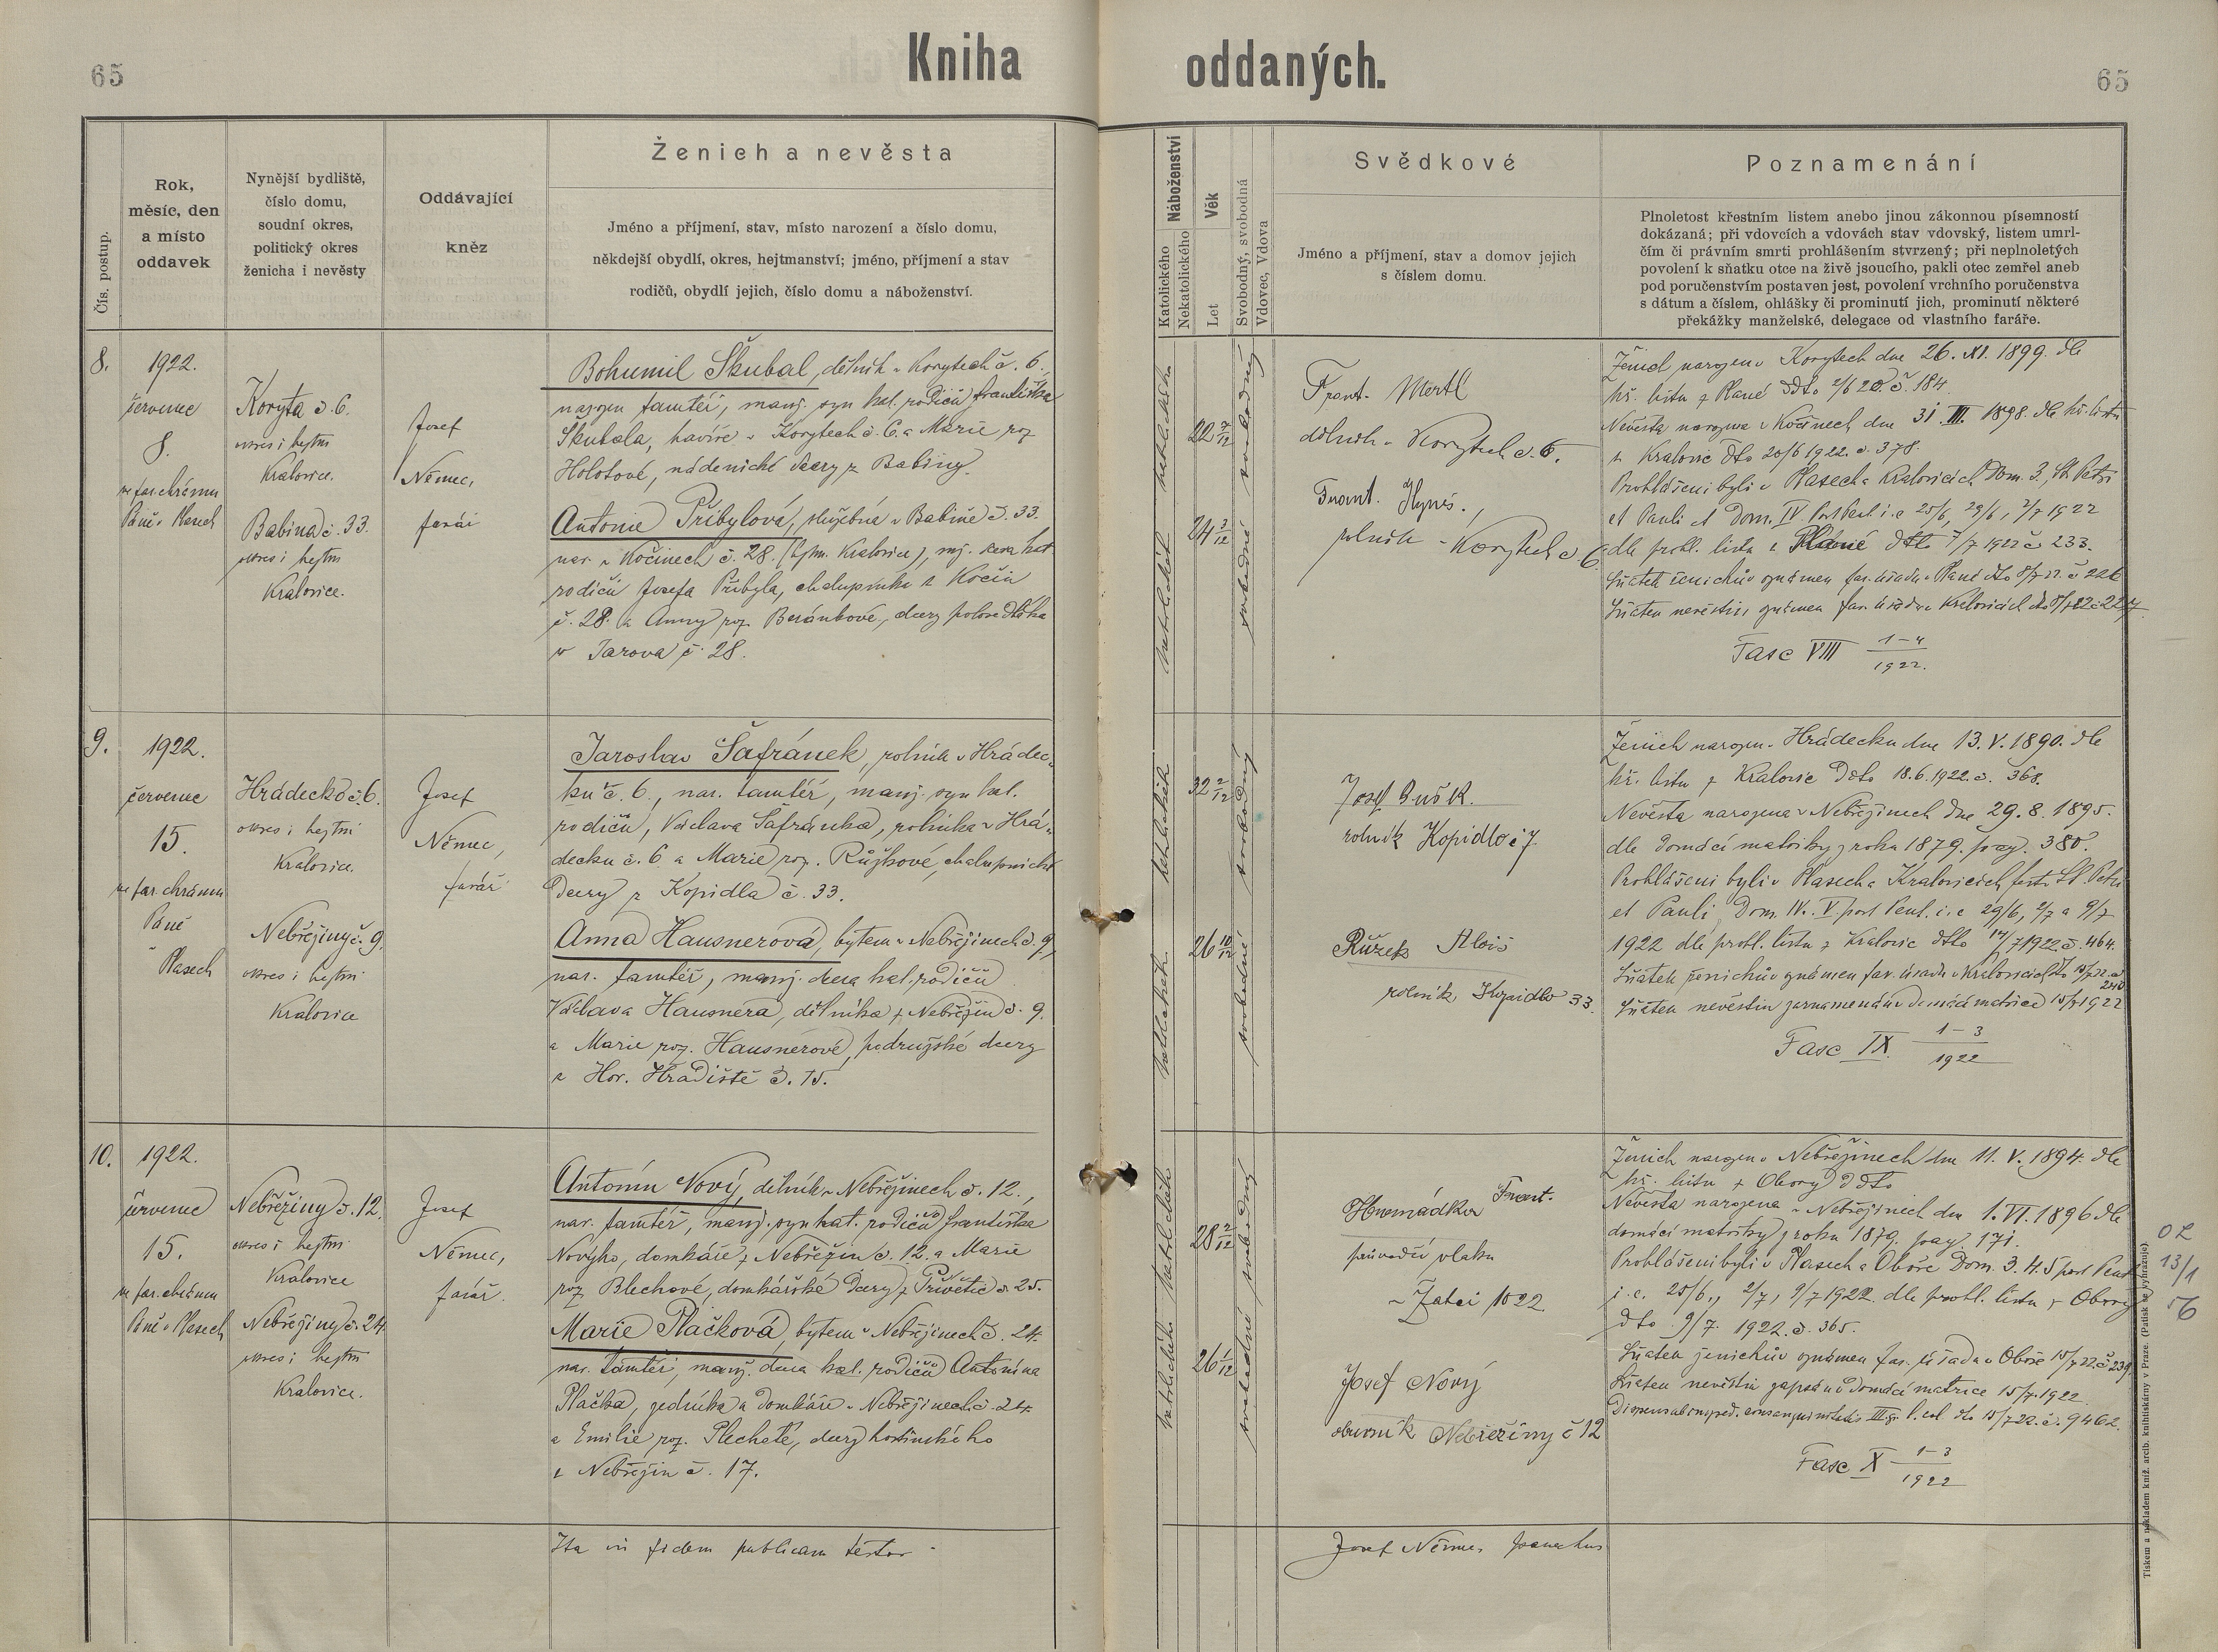 65
Kniha oddaných.
65
Čís. postup.
Rok,
měsíc, den
a místo
oddavek
Nynější bydliště,
číslo domu,
soudní okres,
politický okres
ženicha i nevěsty
Oddávající
kněz
Ženich a nevěsta
Jméno a příjmení, stav, místo narození a číslo domu,
někdejší obydlí, okres, hejtmanství; jméno, příjmení a stav
rodičů, obydlí jejich, číslo domu a náboženství.
Náboženství
Katolického
Nekatolického
Věk
Let
Svobodný, svobodná
Vdovec, Vdova
Svědkové
Jméno a příjmení, stav a domov jejich
s číslem domu.
Poznamenání
Plnoletost křestním listem anebo jinou zákonnou písemností
dokázaná; při vdovcích a vdovách stav vdovský, listem umrl-
čím či právním smrti prohlášením stvrzený; při neplnoletých
povolení k sňatku otce na živě jsoucího, pakli otec zemřel aneb
pod poručenstvím postaven jest, povolení vrchního poručenstva
s dátum a číslem, ohlášky či prominutí jich, prominutí některé
překážky manželské, delegace od vlastního faráře.
8.
1922.
červenec
8.
ve far. chrámu
Páně v Plasech
Koryta č. 6.
okres i hejtm
Kralovice.
Babina č. 33.
okres i hejtm
Kralovice.
Josef
Němec,
farář
Bohumil Škubal, dělník v Korytech č. 6.,
narozen tamtéž, manž. syn kat. rodičů Františka
Škubala, havíře v Korytech č. 6. a Marie roz
Holotové, nádenické dcery z Babiny.
Antonie Přibylová, služebná v Babině č. 33.
nar. v Kočinech č. 28. (hejtm. Kralovice), mž. dcera kat
rodičů Josefa Přibyla, chalupníka z Kočin
č. 28. a Anny roz. Beránkové, dcery polosedláka
v Jarova č. 28.
katolického
katolického
22 7/12
24 3/12
svobodný
svobodná
Frant. Mertl
dělník v Korytech č. 6.
Frant. Hynes.,
rolník v Korytech č. 6
Ženich narozen v Korytech dne 26. XI. 1899. dle
kř. listu z Plané ddto 2/6 20. č. 184.
Nevěsta narozena v Kočinech dne 31. III. 1898. dle kř. listu
z Kralovic ddto 20/6 1922. č. 378.
Prohlášeni byli v Plasech a Kralovicích Dom. 3., St. Petri
et Pauli et Dom. IV. post Pent. i. e 25/6, 29/6, 2/7 1922
dle prohl. listu z Plané ddto 7/7 1922 č. 233.
Sňatek ženichův oznámen far. úřadu v Plané dto 8/7 22. č 226
Sňatek nevěstin oznámen far. úřadu v Kralovicích dto 8/7 22 č 227
Fasc VIII 1–4
1922.
9.
1922.
červenec
15.
ve far. chrámu
Páně
v Plasech
Hrádecko č. 6.
okres i hejtm
Kralovice.
Nebřežiny č. 9.
okres i hejtm
Kralovice
Josef
Němec,
farář
Jaroslav Šafránek, rolník v Hrádec-
ku č. 6., nar. tamtéž, manž. syn kat.
rodičů, Václava Šafránka, rolníka v Hrá-
decku č. 6 a Marie roz. Růžkové, chalupnické
dcery z Kopidla č. 33.
Anna Hausnerová, bytem v Nebřežinech č. 9,
nar. tamtéž, manž. dcera kat. rodičů
Václava Hausnera, dělníka z Nebřežin č. 9.
a Marie roz. Hausnerové, podružské dcery
z Hor. Hradiště č. 15.
32 2/12
26 10/12
svobodný
svobodná
Josef
rolník Kopidlo č 7.
Růžek Alois
rolník Kopidlo 33.
Ženich narozen v Hrádecku dne 13. V. 1890. dle
kř. listu z Kralovic ddto 18.6.1922. č. 368.
Nevěsta narozena v Nebřežinech dne 29. 8. 1895.
dle domácí matriky z roku 1879. pag. 380.
Prohlášeni byli v Plasech a Kralovicích, festo St. Petri
et Pauli, Dom. IV. V. post Pent. i. e 29/6, 2/7 a 9/7
1922 dle prohl. listu z Kralovic ddto 14/7 1922. č. 464.
Sňatek ženichův oznámen far. úřadu v Kralovicích dto 15/7 22. č
240
Sňatek nevěstin zaznamenán v domácí matrice 15/7 1922
Fasc IX. 1–3
1922
10.
1922.
červenec
15.
ve far. chrámu
Páně v Plasech
Nebřežiny č. 12.
okres i hejtm
Kralovice
Nebřežiny č. 24.
okres i hejtm
Kralovice.
Josef
Němec,
farář.
Antonín Nový, dělník v Nebřežinech č. 12.,
nar. tamtéž, manž. syn kat. rodičů Františka
Nového, domkáře z Nebřežin č. 12. a Marie
roz Blechové, domkářské dcery z Přívětic č. 25.
Marie Plačková, bytem v Nebřežinech č. 24.
nar. tamtéž, manž. dcera kat. rodičů Antonína
Plačka, zedníka a domkáře v Nebřežinech č. 24.
a Emilie roz. Plecheté, dcery hostinského
z Nebřežin č. 17.
katolického
katolického
28 2/12
26 1/12
svobodný
svobodná
Hromádka Frant.
průvodčí vlaku
v Žatci 1022
Josef Nový
obuvník Nebřežiny č 12
Ženich narozen v Nebřežinech dne 11. V. 1894. dle
kř. listu z Obory ddto
Nevěsta narozena v Nebřežinech dne 1. VI. 1896 dle
domácí matriky z roku 1879. pag. 171.
Prohlášeni byli v Plasech a Oboře Dom. 3. 4. 5 post Pent
i. e. 25/6., 2/7, 9/7 1922. dle prohl. listu z Obory
dto 9/7. 1922. č. 365.
Sňatek ženichův oznámen far. úřadu v Oboře 15/7 22. č 239.
Sňatek nevěstin zapsán v domácí matrice 15/7. 1922.
Dispens ab imped. consanguinitatis III. gr. l. col dto 15/7 22. č. 9462.
Fasc X 1–3
1922
OZ
13/1
56
Ita in fidem publicam testor
Josef Němec parochus
Tiskem a nákladem kníž. arcib. knihtiskárny v Praze. (Patisk se vyhrazuje).